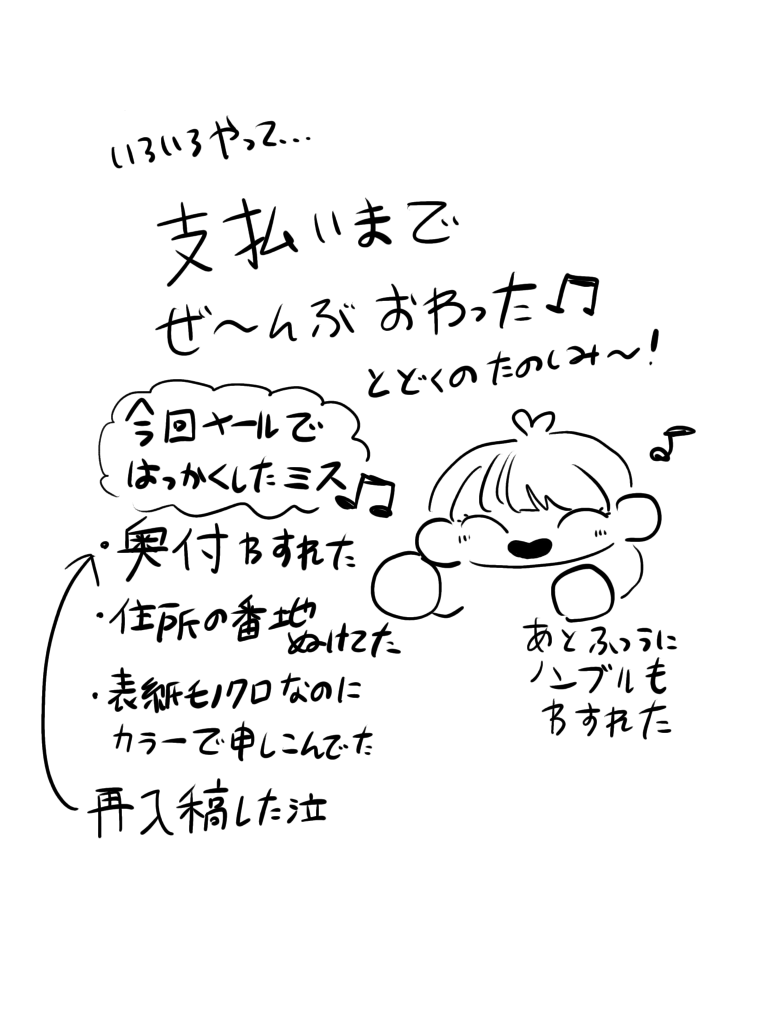 いろいろやって…
支払いまで
ぜ〜んぶおわった♫
とどくのたのしみ〜!
今回メールで
はっかくしたミス♫
・奥付わすれた
・住所の番地
ぬけてた
・表紙モノクロなのに
カラーで申しこんでた
再入稿した泣
あとふつうに
ノンブルも
わすれた